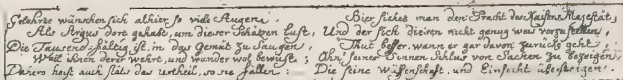 Gelehrte wünschen sich alhier so viele Augen,
Als Argus dort gehabt, um dieser Schätzen Lust,
Die Tausendfältig ist, in das Gemüt zu saugen,
Weil ihnen derer wehrt, und wunder wol bewust:
Dahero heist auch stäts das urtheil, so sie fällen:
Hier siehet man den Pracht des Kaisers Majestät;
Und der sich diesen nicht genug weis vorzustellen,
Thut besser, wann er gar davon zurück geht,
Ohn seiner Sinnen Schlus von Sachen zu bezeigen,
Die seine Wissenschaft, und Einsicht übersteigen.